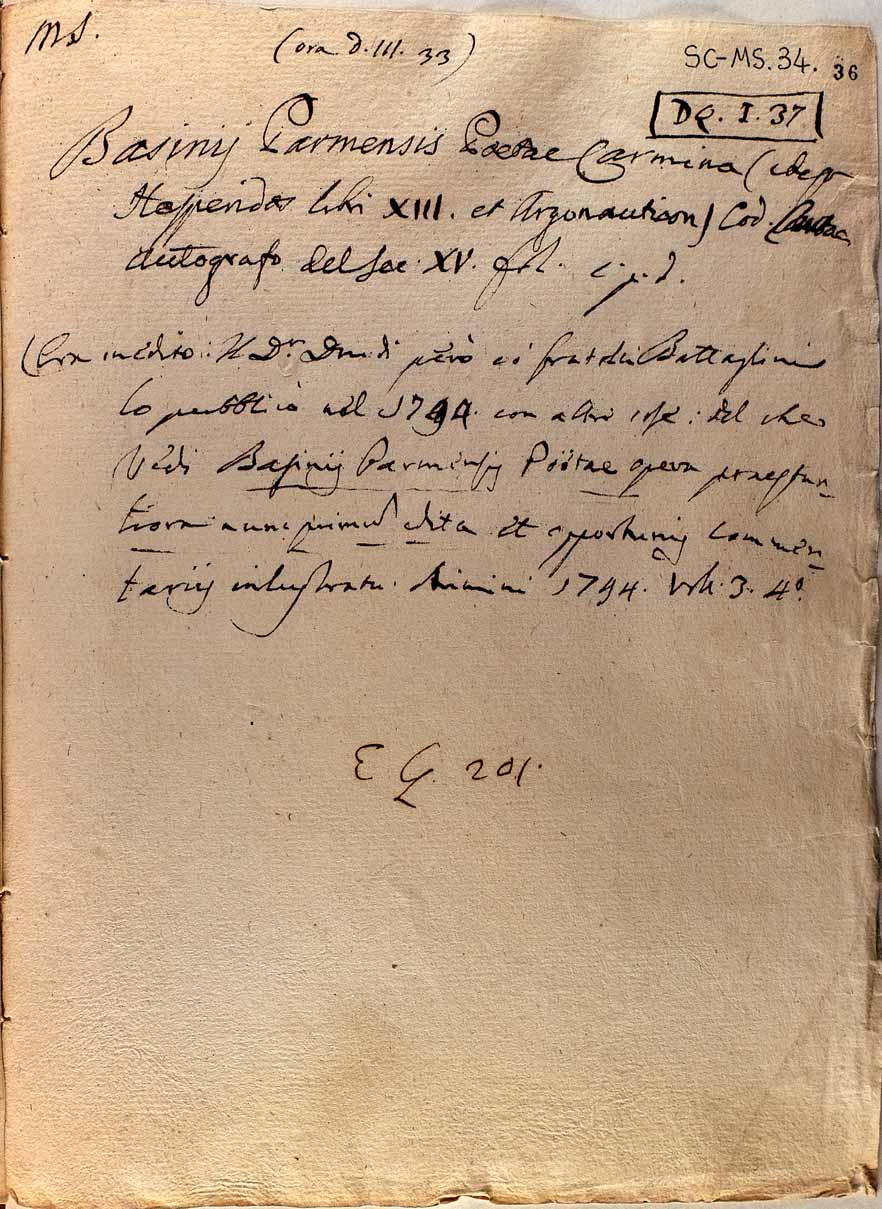 MS.
(ora D. III. 33)
SC-MS. 34. 36
DQ. I. 37
Basinij Parmensis Poetae Carmina (idest
Hesperidos libri XIII. et Argonauticon) Cod.
Autografo del Sec. XV. fol. c. p. d.
(Era inedito: Il Dr. Drudi però ei fratelli Battaglini
lo pubblicò nel 1794. con altre cose: del che
vedi Basinij Parmensis Poetae opera praestan-
tiora nunc primum edita et opportunis commen-
tariis inlustrata. Arimini 1794. Vol. 3. 4°.
E G. 201.